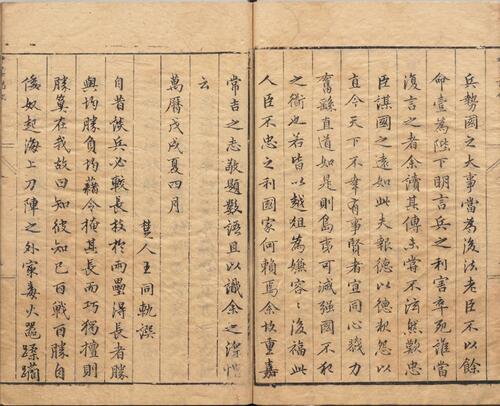 兵勢國之大事當為後法老臣不以餘
命壹為陛下明言兵之利害卒死誰當
復言之者余讀其傳未嘗不泫然歎忠
臣謀國之遠如此夫報德以德報怨以
直今天下不幸有事賢者宜同心戮力
奮繇直道如是則島夷可減强國不
之衛也若皆以越俎為嫌容〻後福此
人臣不忠之利國家何賴焉余故重嘉
常吉之志敬題數語且以識余之深愧
云
萬曆戊戌夏四月
楚人王同軌譔
自昔談兵必較長技於兩壘得長者勝
與均勝負均藉令掩其長而巧獨擅則
勝算在我故曰知彼知己百戰百勝自
倭奴起海上刀陣之外家毒火器蹂躪